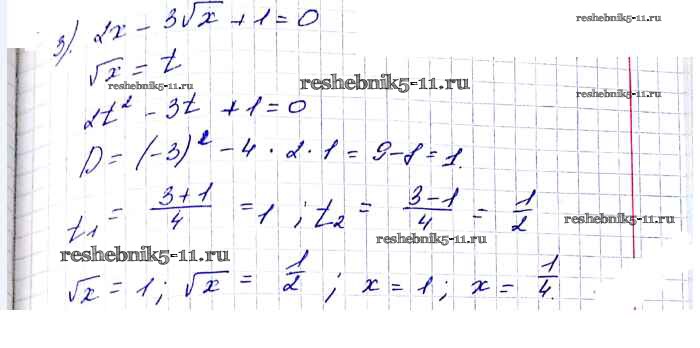 3). 2x - 3√x + 1 = 0
reshebnik5-11.ru
√x = t
reshebnik5-11.ru
reshebnik5-11.ru
reshebnik5-11.ru
2t² - 3t + 1 = 0
D = (-3)² - 4 · 2 · 1 = 9 - 8 = 1.
t₁ = (3+1)/4 = 1 ; t₂ = (3-1)/4 = 1/2
reshebnik5-11.ru
reshebnik5-11.ru
reshebnik5-11.ru
√x = 1 ; √x = 1/2 ; x = 1 ; x = 1/4.